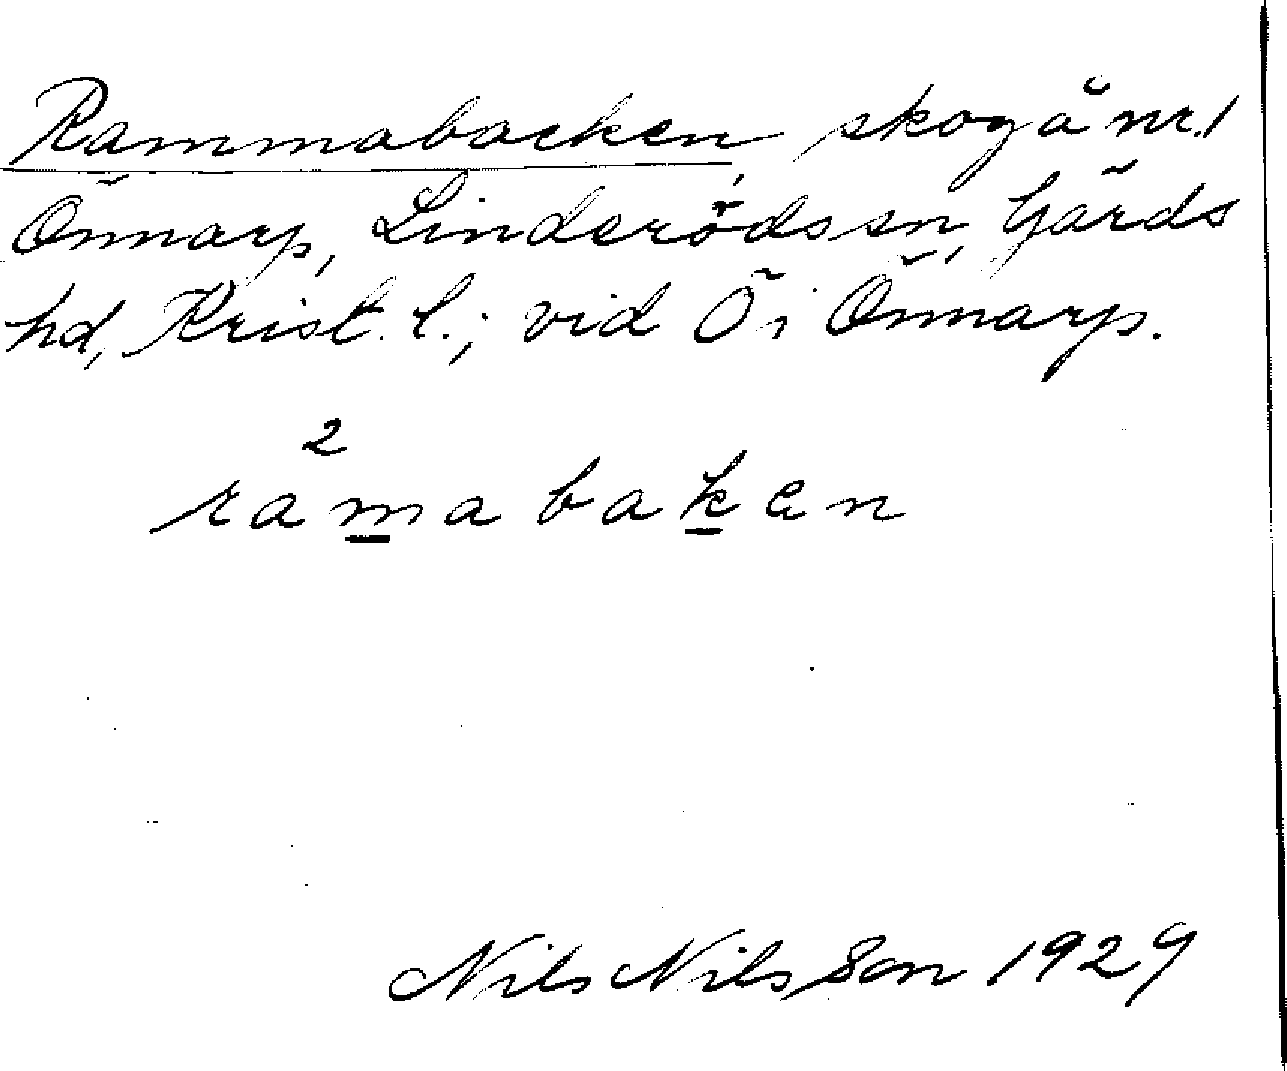 Rammabacken, skog å nr. 1
Önnarp, Linderöds sn, Gärds
hd, Krist. l.; vid Ö i Önnarp.
2
ramabaken
Nils Nilsson 1929